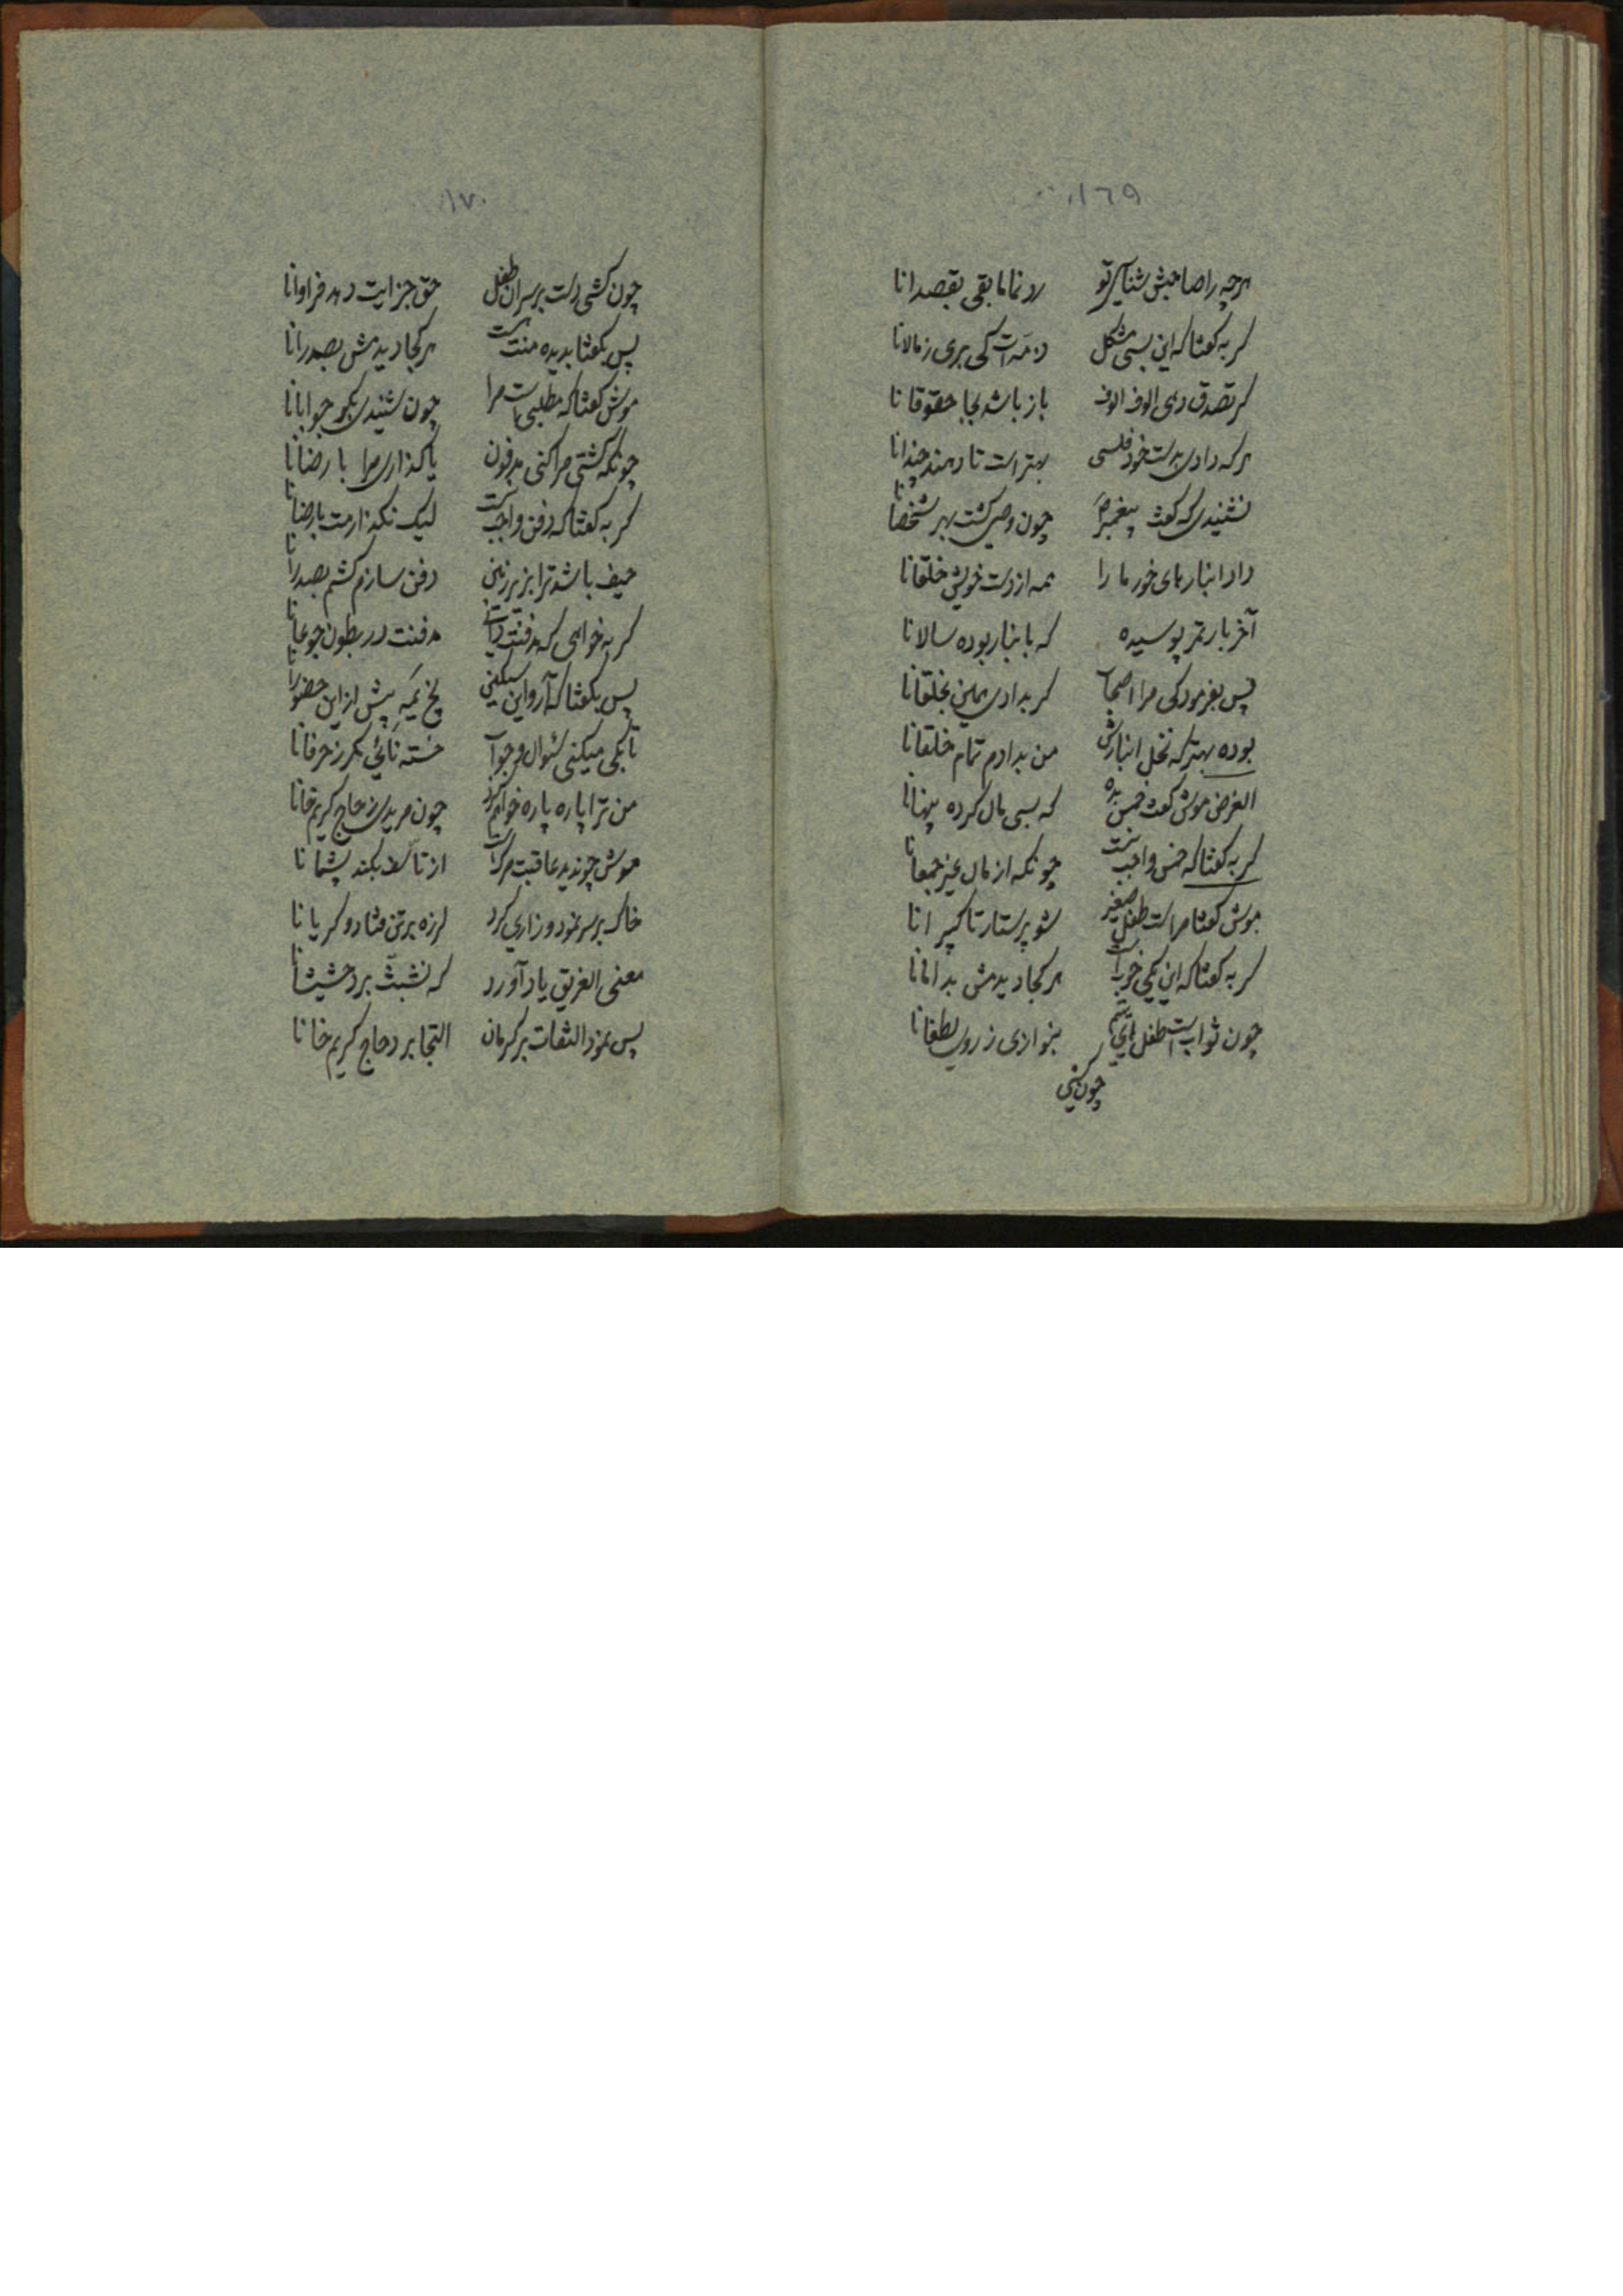 ١٦٩
هرچه را صاحبش شناسی تو    رد نما مابقی بقصدانا
گربه گفتا که این بسی مشکل    ذمه‌ات کی بری ز مالانا
گر تصدق دهی الوف الوف    باز باشد بجا حقوقانا
هرکه دادی بدست خود فلسی    بهتر است تا دهند چندانا
نشنیدی که گفت پیغمبر ص    چون وصی گشت بهر شخصانا
داد انبارهای خرما را    همه از دست خویش خلقانا
آخر بار تمر پوسیده    که بانبار بوده سالانا
پس بفرمود کی مرا اصحاب    گر بدادی همین بخلقانا
بوده بهتر که نخل انبارش    من بدادم تمام خلقانا
الغرض موش گفت خمس بده    که بسی مال کرده پنهانا
گربه گفتا که خمس واجب نیست    چونکه از مال غیر جمعانا
موش گفتا مراست طفل صغیر    شو پرستار تا کبیرانا
گربه گفتا که این یکی خوبست    هر کجا دیدمش بدامانا
چون ثوابست طفل یتیم    بنوازی ز روی لطفانا
چون کشی
١٧٠
چون کشی دست بر سر آن طفل    حق جزایت دهد فراوانا
پس بگفتا بدیده منت هست    هر کجا دیدمش بصدرانا
موش گفتا که مطلبی است مرا    چون شنیدی بگو جوابانا
چونکه گشتی مرا کنی مدفون    یا گذاری مرا بارضانا
گربه گفتا که دفن واجبست    لیک نگذارمت بارضانا
حیف باشد ترا بزیر زمین    دفن سازم کشم بصدرانا
گر بخواهی که مدفنت دانی    مدفنت در بطون جوعانا
پس بگفتا که آرواین سبکنی    پیش از این حضورانا
تا بکی میکنی سئوال و جواب    خسته نائی مگر ز حرفانا
من ترا پاره پاره خواهم کرد    چون مریدی ز حاج کریم خانا
موش چون دید عاقبت مرگ است    از تأسف بکند پشمانا
خاک بر سر نمود و زاری کرد    لرزه بر تن فتاد و گریانا
معنی الغریق یاد آورد    که تشبث برد حشیشانا
پس نمود التفات بر کرمان    التجا برد حاج کریم خانا